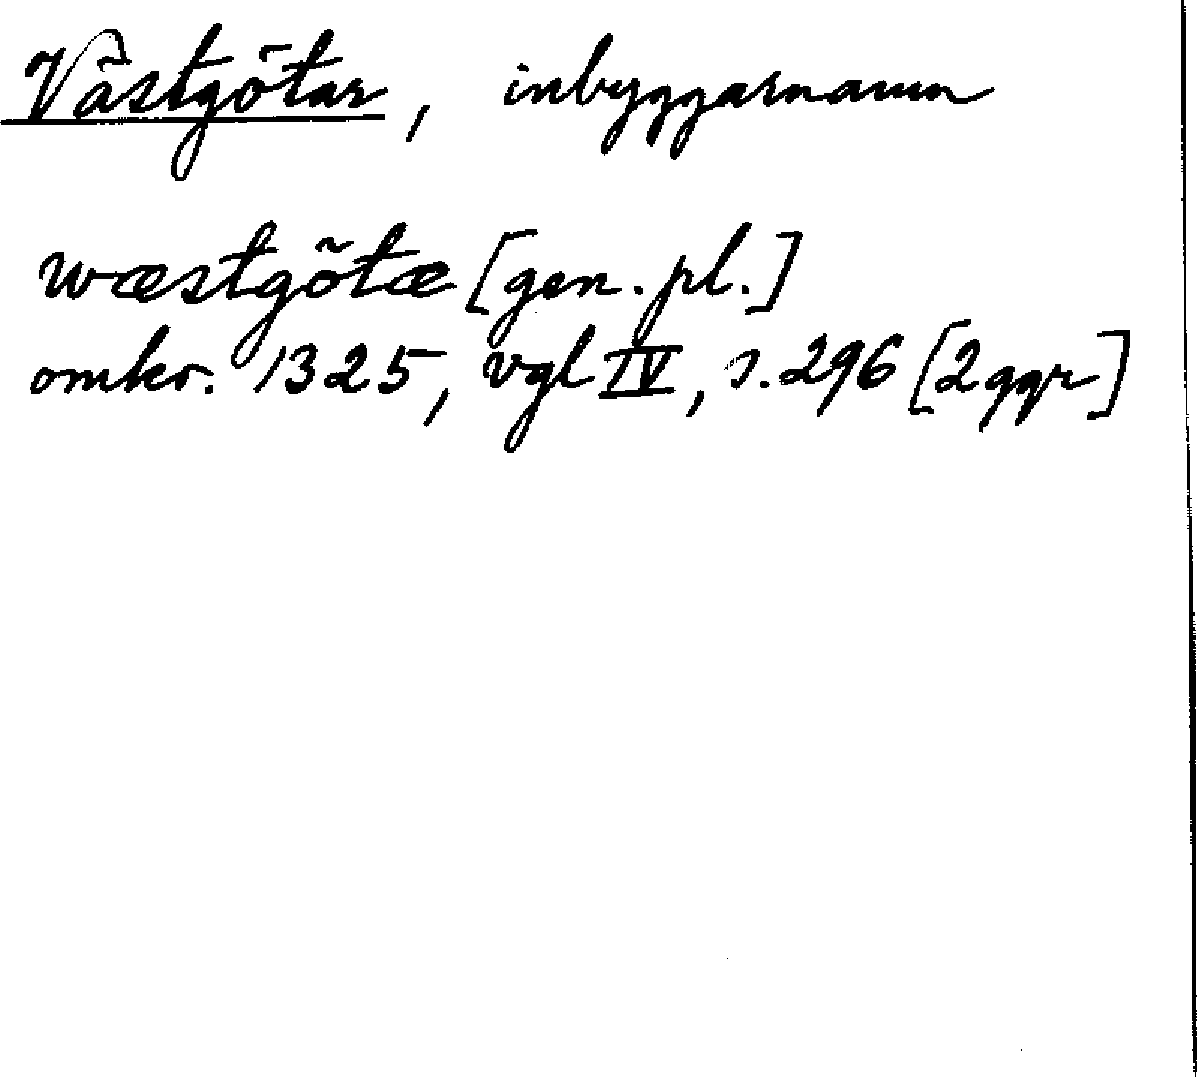 Västgötar, inbyggarnamn
wæstgötæ [gen. pl.]
omkr. 1325, vgl IV, s. 296 [2 ggr]